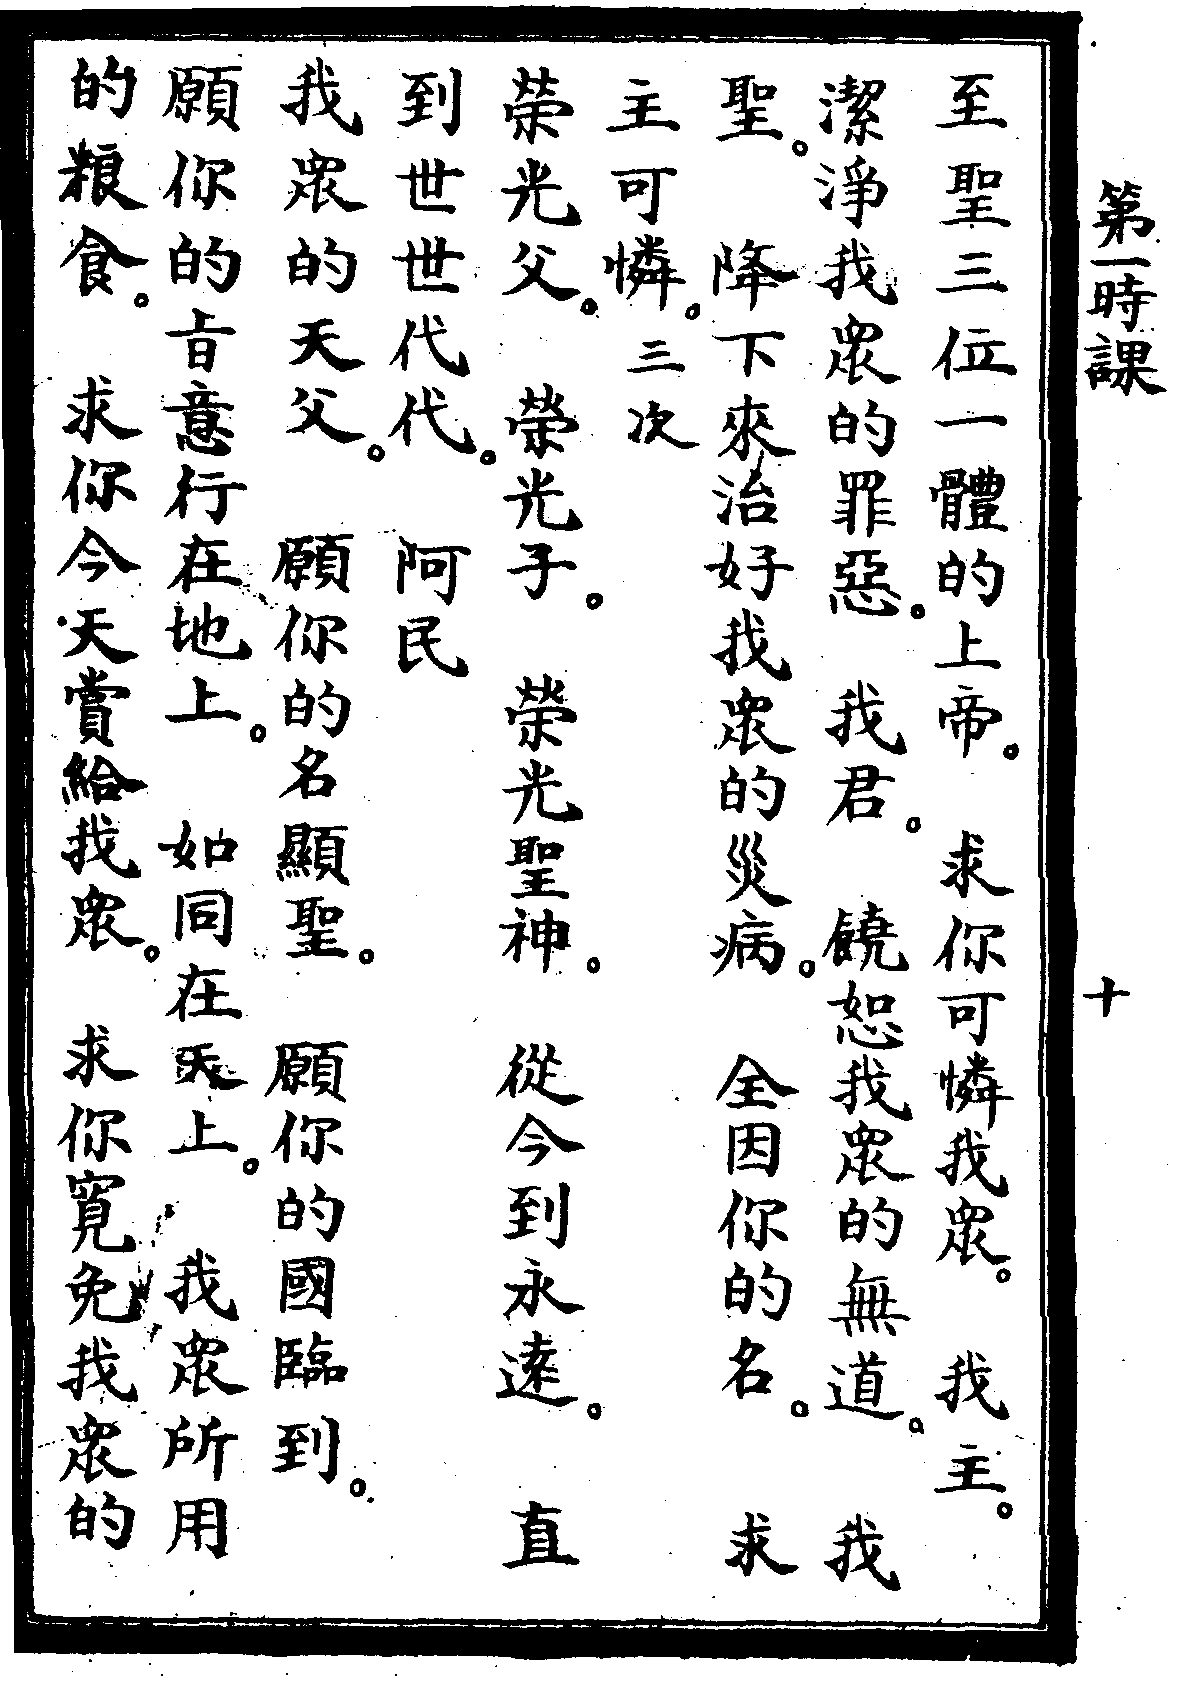 第一時課
十
至聖三位一體的上帝。　求你可憐我衆。　我主。
潔淨我衆的罪惡。　我君。　饒恕我衆的無道。　我
聖。　降下來治好我衆的災病。　全因你的名。　求
主可憐。三次
榮光父。　榮光子。　榮光聖神。　從今到永遠。　直
到世世代代。　阿民
我衆的天父。　願你的名顯聖。　願你的國臨到。
願你的旨意行在地上。　如同在天上。　我衆所用
的粮食。　求你今天賞給我衆。　求你寬免我衆的